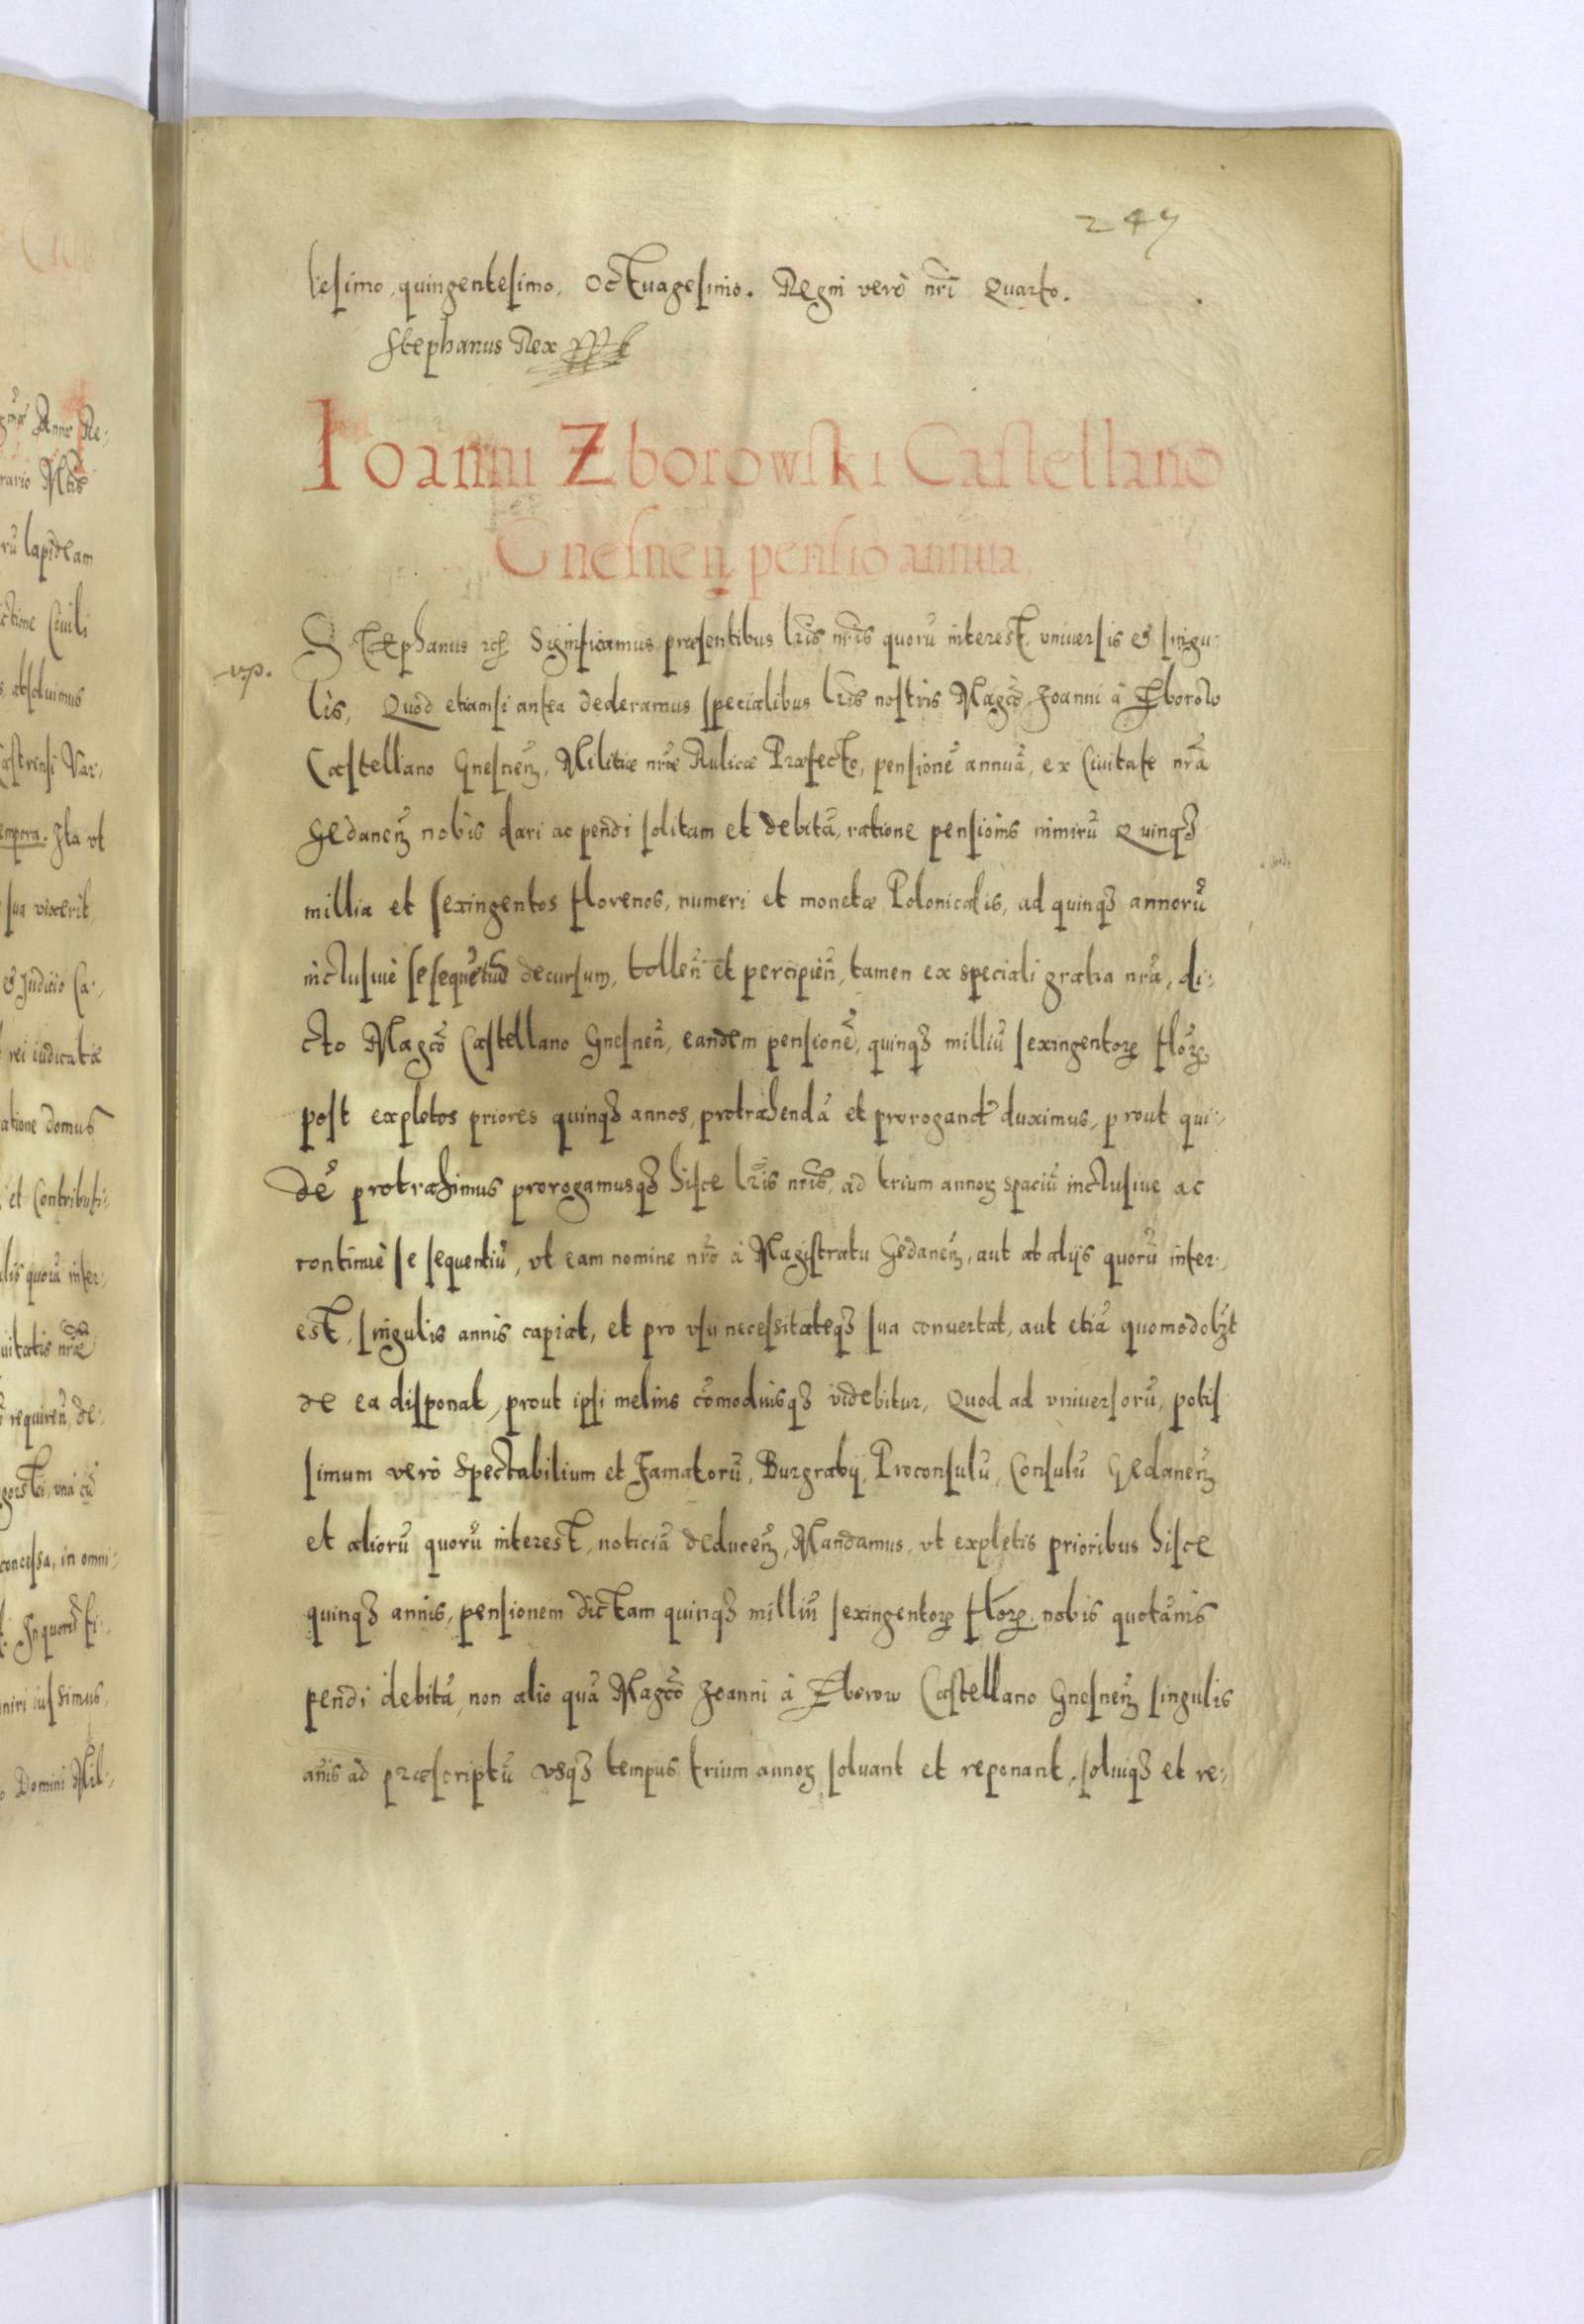 247
lesimo, quingentesimo, Octuagesimo. Regni verò nrī Quarto.
Stephanus Rex
Ioanni Zborowski Castellano
Gnesneñ pensio annua.
Stephanus etc Significamus præsentibus lr̄is nr̄is quorũ interest, vniuersis et singu-
vp.
lis, Quod etiamsi antea dederamus specialibus lr̄is nostris Magcõ Joanni à Zborow
Castellano Gnesneñ, Militiæ nr̄æ Aulicæ Præfecto, pensionẽ annuã, ex Ciuitate nr̄a
Gedaneñ nobis dari ac pendi solitam et debitã, ratione pensionis nimirũ Quinqȝ
millia et sexingentos florenos, numeri et monetæ Polonicalis, ad quinqȝ annorũ
inclusiuè se decursum, tolleñ et percipieñ, tamen ex speciali gratia nr̄a, di-
cto Magcõ Castellano Gnesneñ, eandem pensionẽ, quinqȝ milliũ sexingentorꝝ florꝝ
post expletos priores quinqȝ annos, protrahendã et prorogandã duximus, prout qui-
dẽ protrahimus prorogamusqȝ hisce lr̄is nr̄is, ad trium annorꝝ spaciũ inclusiue ac
continuè se sequentiũ, vt eam nomine nrō à Magistratu Gedaneñ, aut ab alijs quorũ inter-
est, singulis annis capiat, et pro vsu necessitateqȝ sua conuertat, aut etiã quomodolȝt
de ea disponat, prout ipsi melius cõmodiusqȝ videbitur, Quod ad vniuersorũ, potis
simum verò Spectabilium et Famatorũ, Burgrabij, Proconsulũ, Consulũ Gedaneñ
et aliorũ quorũ interest, noticiã deduceñ, Mandamus, vt expletis prioribus hisce
quinqȝ annis, pensionem dictam quinqȝ milliũ sexingentorꝝ florꝝ nobis quotãnis
pendi debitã, non alio quã Magcõ Joanni à Zborow Castellano Gnesneñ singulis
añis ad præscriptũ vsqȝ tempus trium annorꝝ soluant et reponant, soluiqȝ et re-